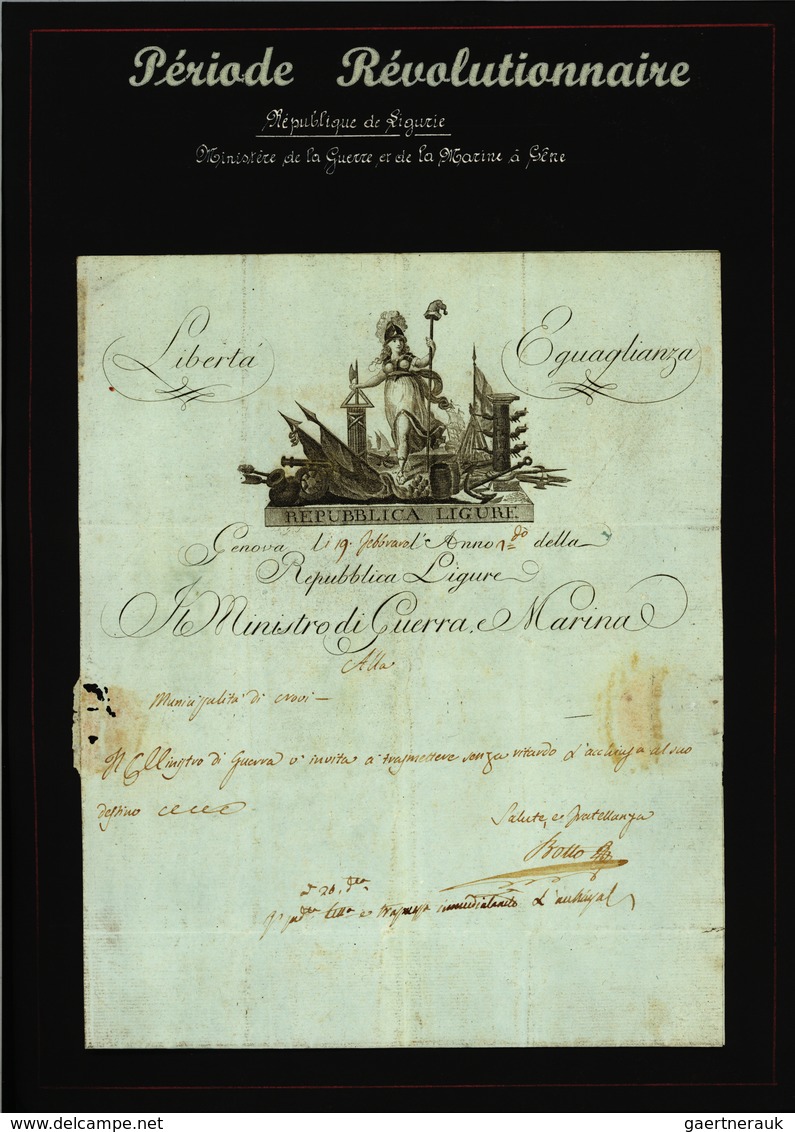 Période Révolutionnaire
République de Ligurie
Ministère de la Guerre et de la Marine à Gêne
Libertá
Eguaglianza
REPUBBLICA LIGURE
Genova li 19. Febbraro l'Anno 2.do della
Repubblica Ligure
Il Ministro di Guerra, e Marina
Alla
Municipalità di Novi
Il Ministro di Guerra v'invita a trasmettere senza ritardo l'acclusa al suo
destino
Salute, e Fratellanza
Bollo
d 20. d.
e trasmessa
delcampe.net
gaertnerauk